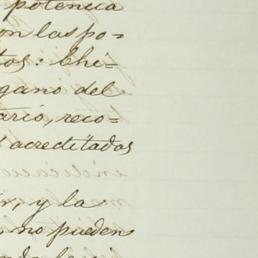 potencia
on las po-
tos: Chi-
gano del
ario, reco-
acreditados
ir, y la
no pueden